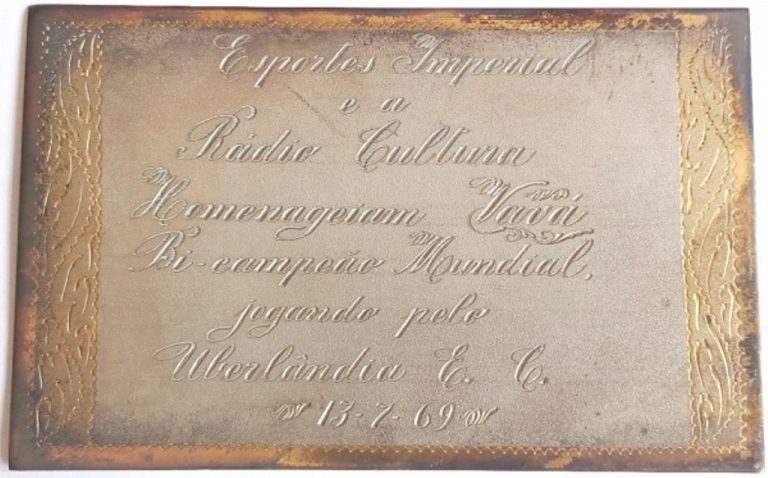 Esportes Imperial
e a
Rádio Cultura
Homenageiam Vavá
Bi-campeão Mundial,
jogando pelo
Uberlândia E. C.
13-7-69